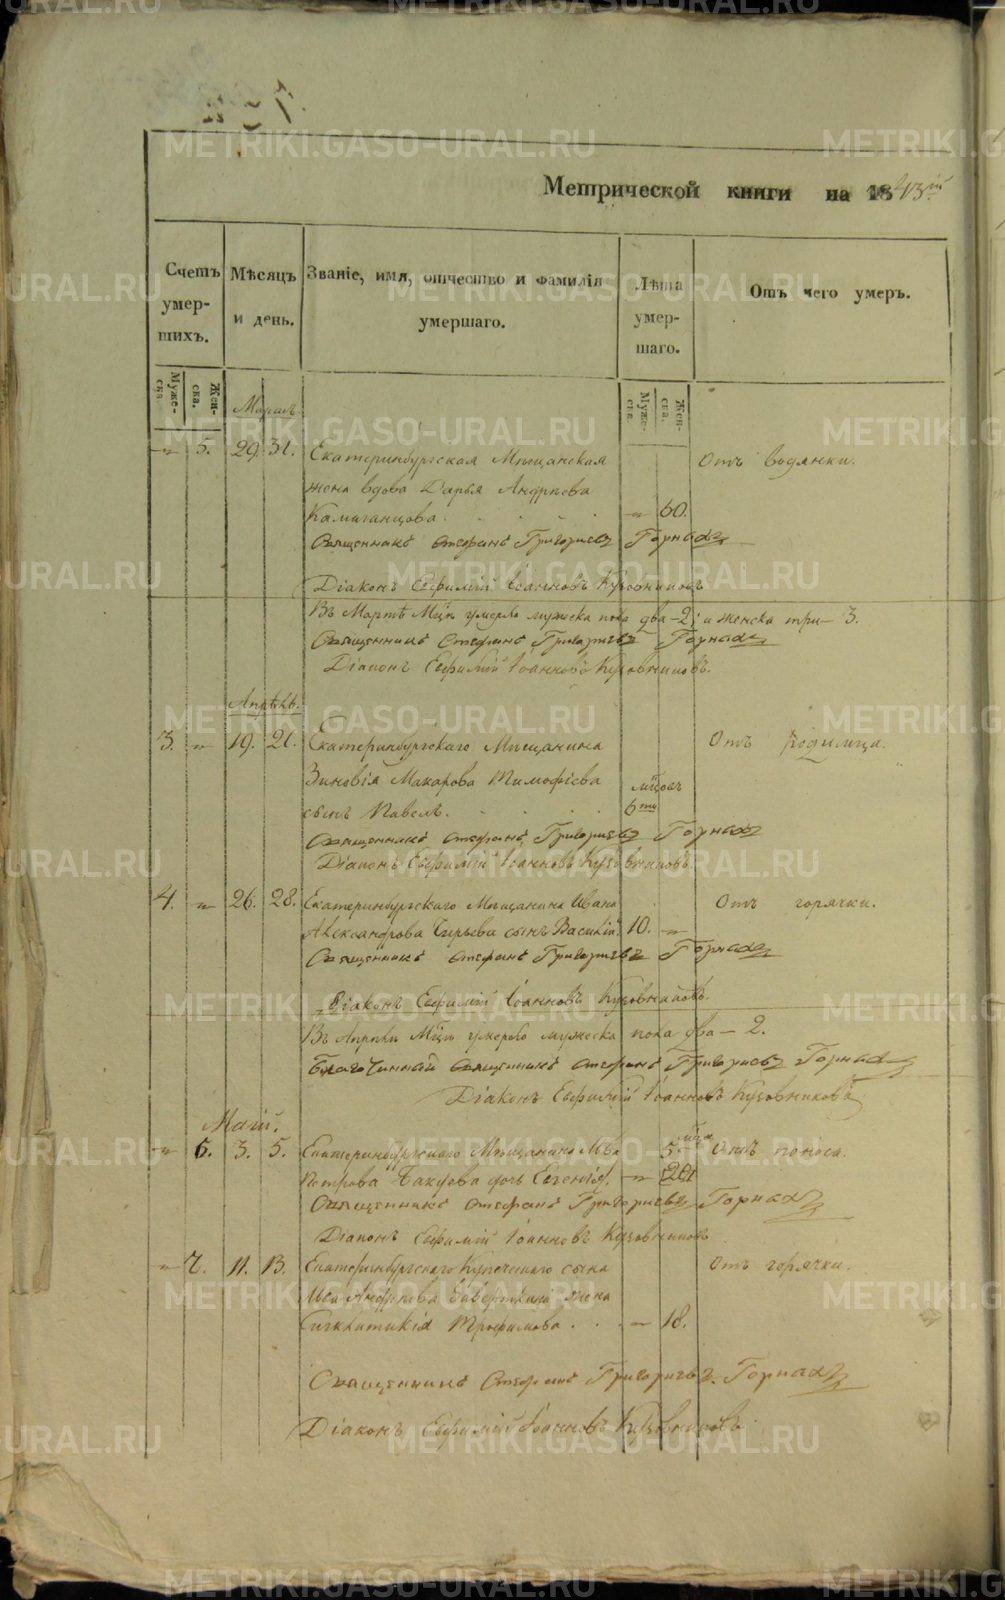 Метрической книги на 1843й
Счетъ умер-шихъ.
Мѣсяцъ и день.
Званіе, имя, отчество и фамилія умершаго.
Лѣта умер-шаго.
Отъ чего умеръ.
Муже-ска.
Жен-ска.
Муже-ска.
Жен-ска.
Мартъ.
" 5. 29. 31. Екатеринбургская Мѣщанская Отъ водянки.
жена вдова Дарья Андреева
" 60.
Священникъ Стефанъ Григорьевъ
Діаконъ Евфимій Іоанновъ Кузовниковъ
Въ Мартѣ Мцѣ умерло мужеска пола два – 2; и женска три – 3.
Священникъ Стефанъ Григорьевъ
Діаконъ Евфимій Іоанновъ Кузовниковъ.
Апрѣль.
3. " 19. 21. Екатеринбургскаго Мѣщанина Отъ родимца.
Зиновія Макарова Тимофѣева мѣсяц
сынъ Павелъ. 6ти
Священникъ Стефанъ Григорьевъ
Діаконъ Евфимій Іоанновъ Кузовниковъ.
4. " 26. 28. Екатеринбургскаго Мѣщанина Ивана Отъ горячки.
Александрова сынъ Василій. 10. "
Священникъ Стефанъ Григорьевъ
Діаконъ Евфимій Іоанновъ Кузовниковъ.
Въ Апрѣлѣ Мцѣ умерло мужеска пола два – 2.
Благочинный священникъ Стефанъ Григорьевъ
Діаконъ Евфимій Іоанновъ Кузовниковъ
Маій.
" 6. 3. 5. Екатеринбургскаго Мѣщанина Льва 5 мца Отъ поноса.
Петрова дочь Евгенія. "
Священникъ Стефанъ Григорьевъ
Діаконъ Евфимій Іоанновъ Кузовниковъ
" 7. 11. 13. Екатеринбургскаго Купеческаго сына Отъ горячки.
Льва Андреева жена
Сигклитикія Трофимова " 18.
Священникъ Стефанъ Григорьевъ.
Діаконъ Евфимій Іоанновъ Кузовниковъ.
METRIKI.GASO-URAL.RU